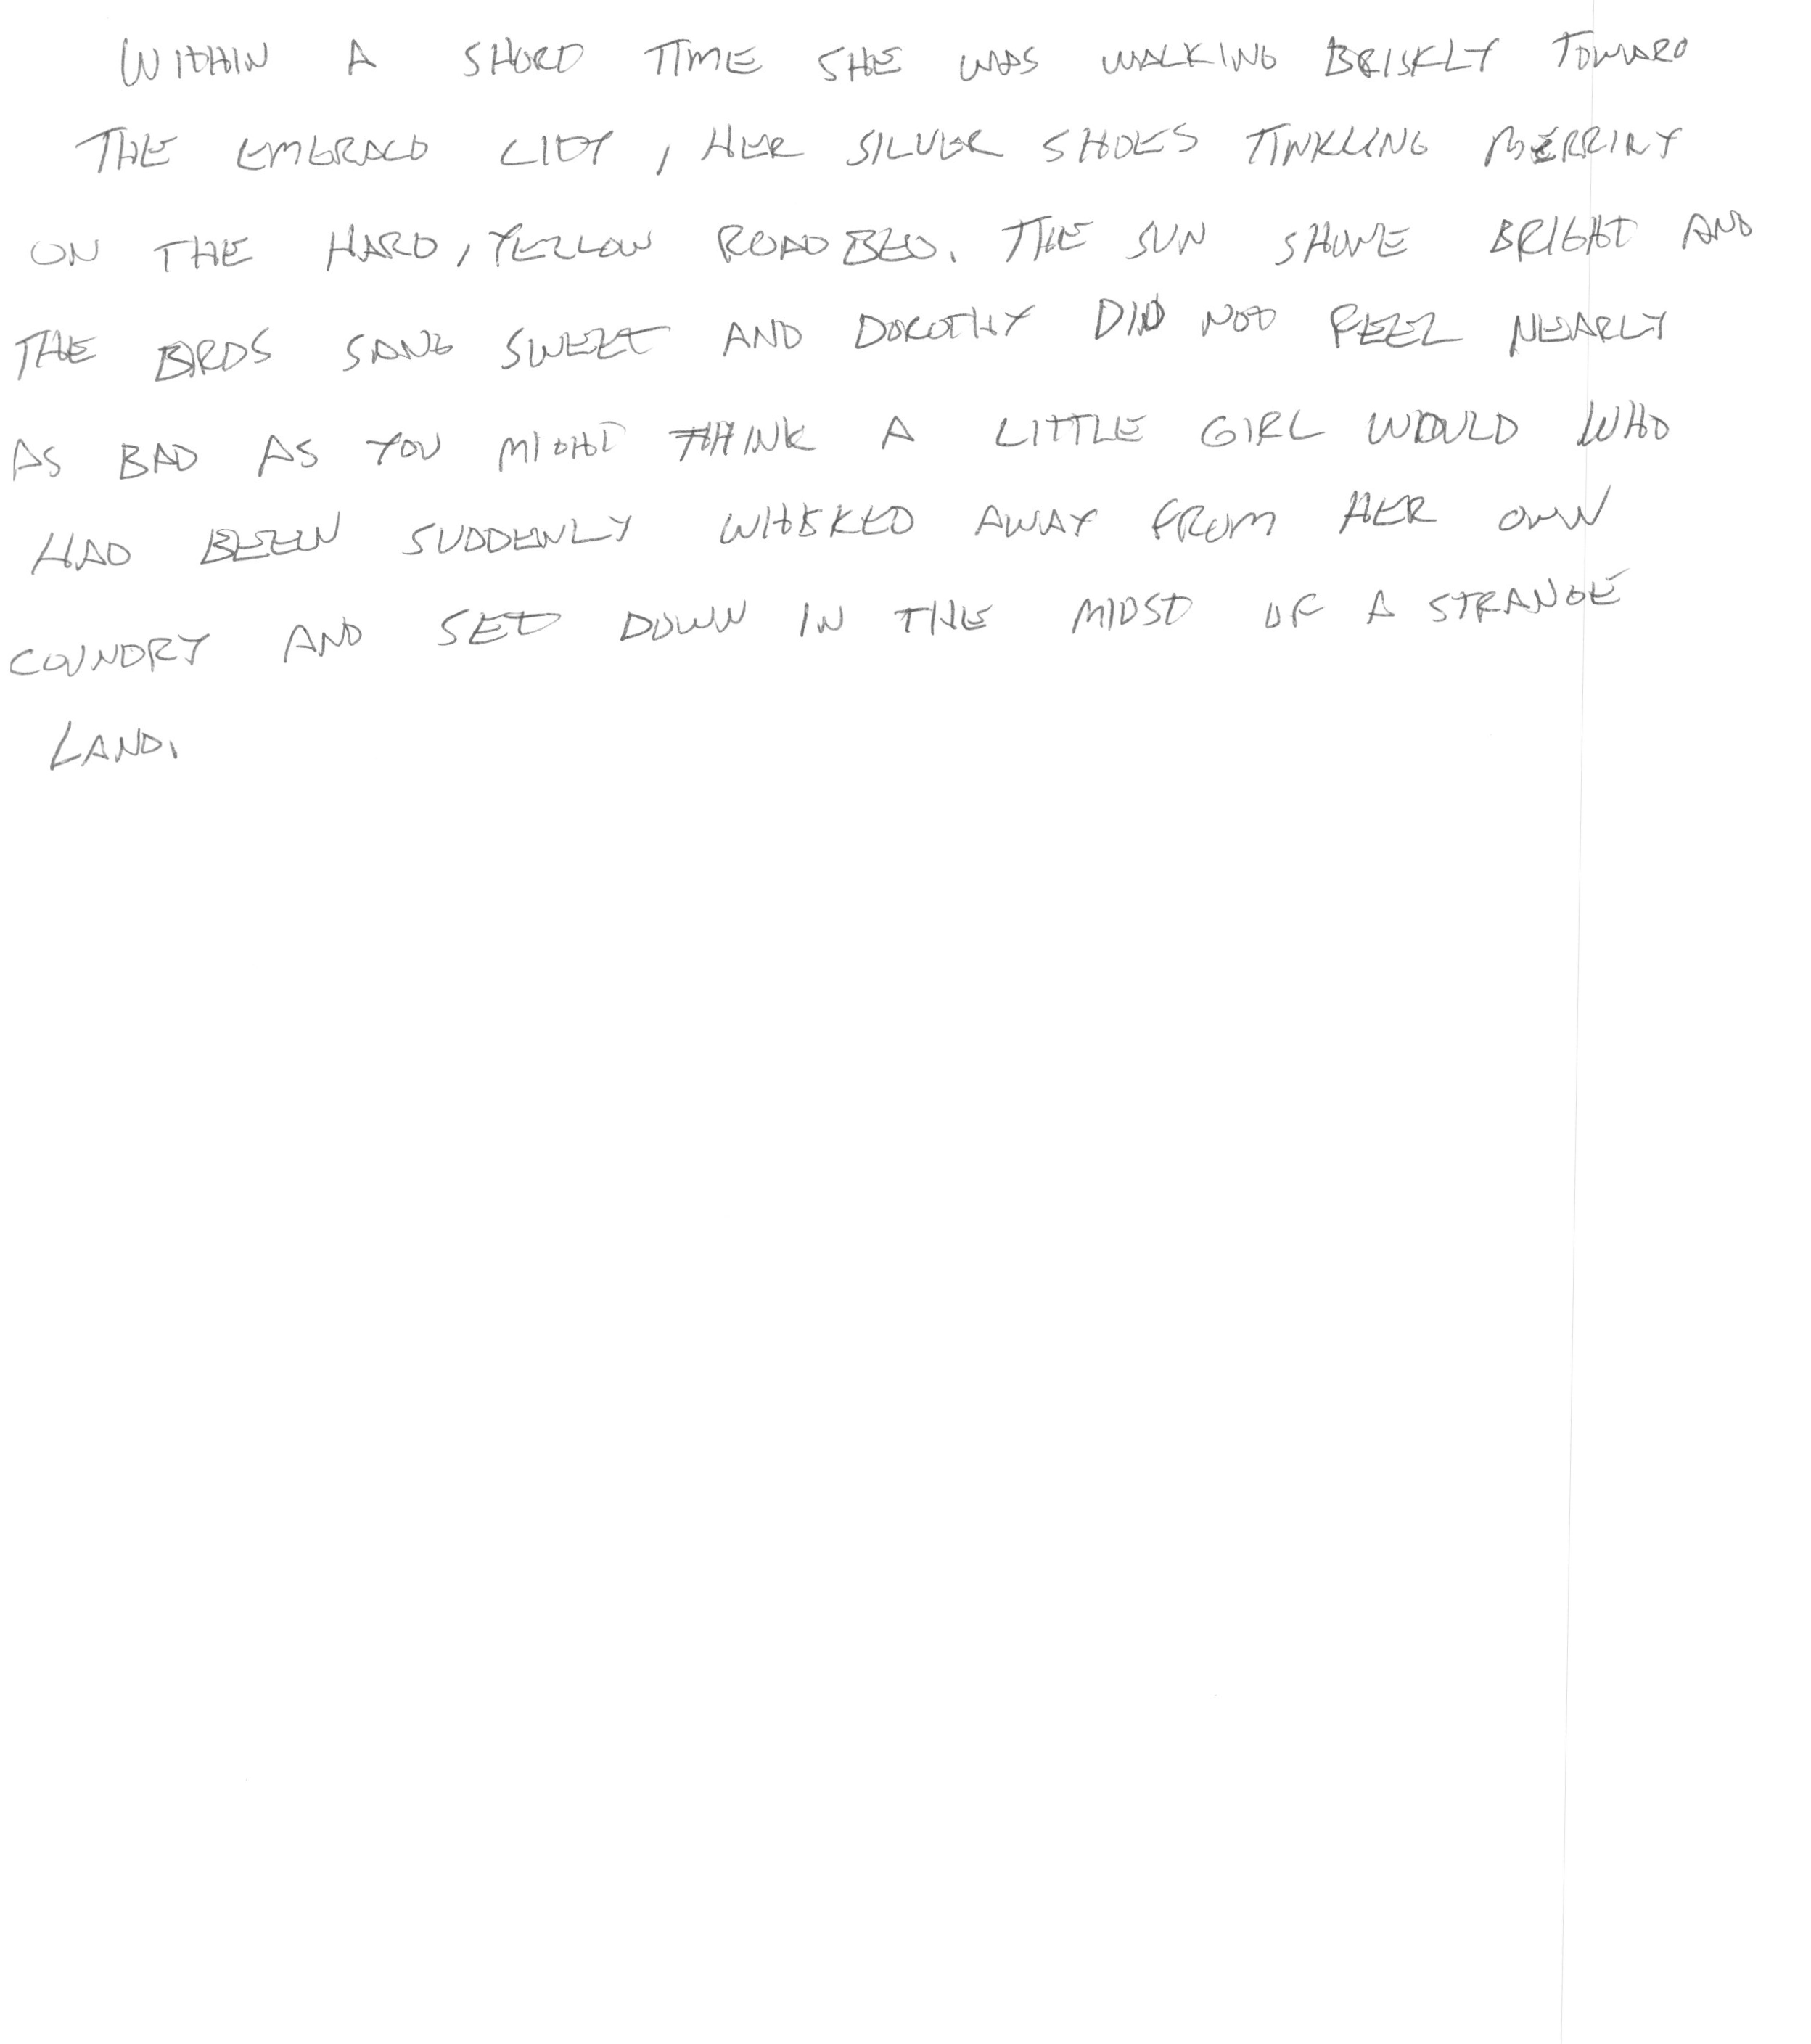 WITHIN A SHORT TIME SHE WAS WALKING BRISKLY TOWARD
THE EMERALD CITY, HER SILVER SHOES TINKLING MERRILY
ON THE HARD, YELLOW ROADBED. THE SUN SHONE BRIGHT AND
THE BIRDS SANG SWEET AND DOROTHY DID NOT FEEL NEARLY
AS BAD AS YOU MIGHT THINK A LITTLE GIRL WOULD WHO
HAD BEEN SUDDENLY WHISKED AWAY FROM HER OWN
COUNTRY AND SET DOWN IN THE MIDST OF A STRANGE
LAND.